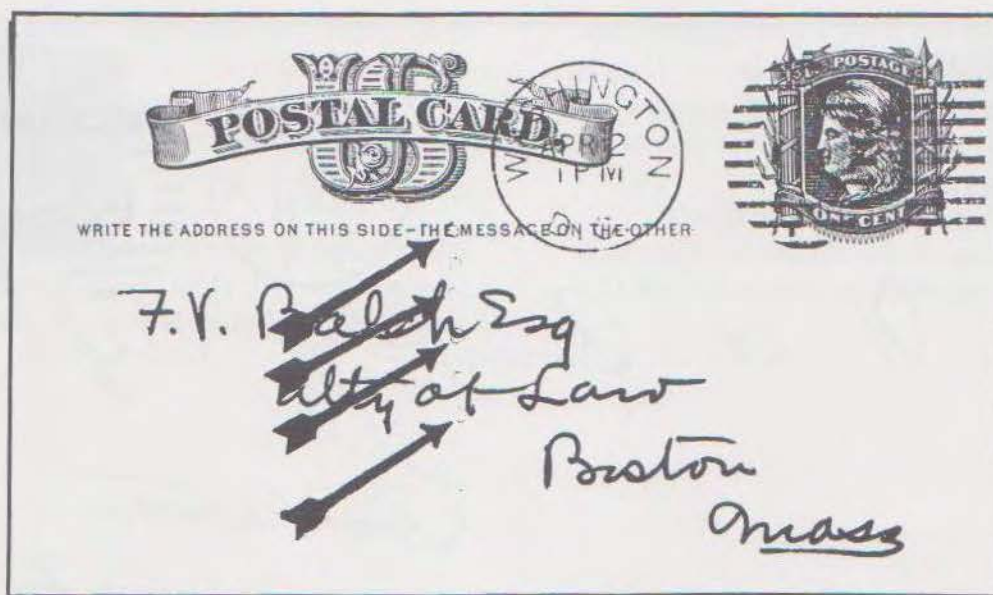 US
POSTAL CARD
WASHINGTON
APR 12
1 PM
D.C.
U.S. POSTAGE
ONE CENT
WRITE THE ADDRESS ON THIS SIDE-THE MESSAGE ON THE OTHER
F.V. Balch Esq
Atty at Law
Boston
Mass